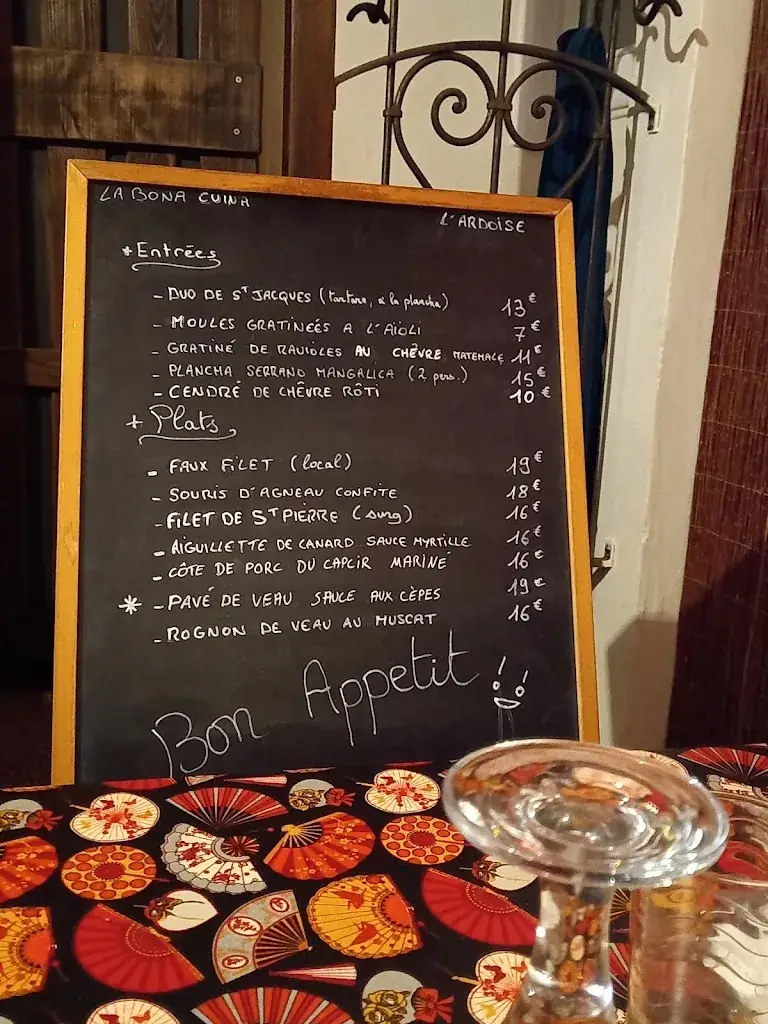 LA BONA CUINA
L'ARDOISE
+ Entrées
- DUO DE ST JACQUES (tartare, à la plancha) 13€
- MOULES GRATINEÉS A L'AÏOLI 7€
- GRATINÉ DE RAVIOLES AU CHÊVRE MATEMALE 11€
- PLANCHA SERRANO MANGALICA (2 pers.) 15€
- CENDRÉ DE CHÊVRE RÔTI 10€
+ Plats
- FAUX FILET (local) 19€
- SOURIS D'AGNEAU CONFITE 18€
- FILET DE ST PIERRE (surg) 16€
- AIGUILLETTE DE CANARD SAUCE MYRTILLE 16€
- CÔTE DE PORC DU CAPCIR MARINÉ 16€
* - PAVÉ DE VEAU SAUCE AUX CÈPES 19€
- ROGNON DE VEAU AU MUSCAT 16€
Bon Appetit !